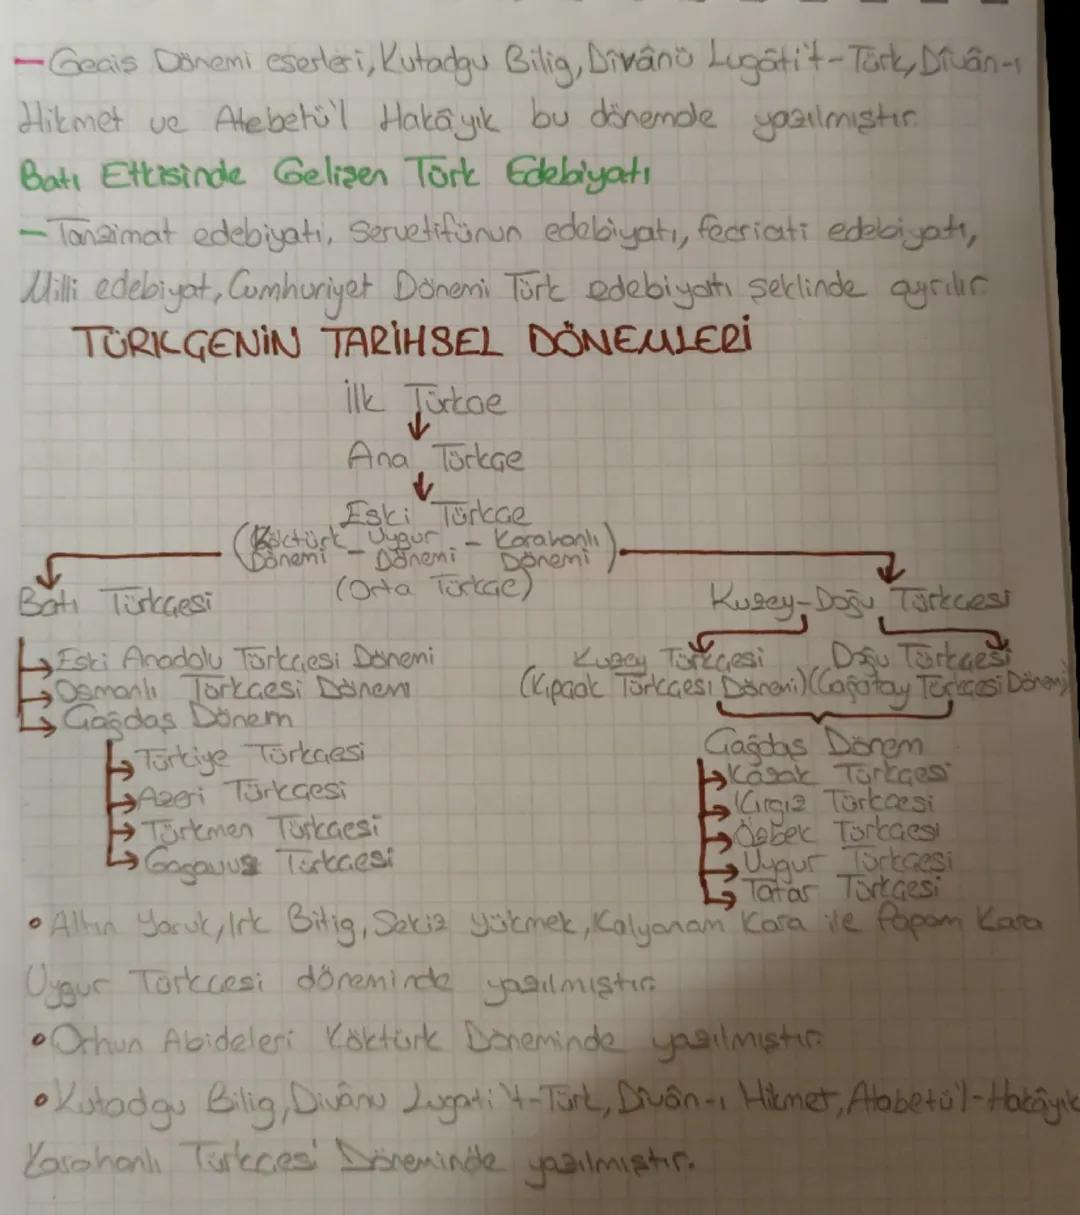 - Geçiş Dönemi eserleri, Kutadgu Bilig, Dîvânü Lugâti't-Türk, Dîvân-ı
Hikmet ve Atebetü'l Hakâyık bu dönemde yazılmıştır.
Batı Etkisinde Gelişen Türk Edebiyatı
- Tanzimat edebiyatı, Servetifünun edebiyatı, fecriati edebiyatı,
Milli edebiyat, Cumhuriyet Dönemi Türk edebiyatı şeklinde ayrılır.
TÜRKÇENİN TARİHSEL DÖNEMLERİ
İlk Türkçe
Ana Türkçe
Eski Türkçe
(Köktürk Dönemi - Uygur Dönemi - Karahanlı Dönemi)
(Orta Türkçe)
Batı Türkçesi
Eski Anadolu Türkçesi Dönemi
Osmanlı Türkçesi Dönemi
Çağdaş Dönem
Türkiye Türkçesi
Azeri Türkçesi
Türkmen Türkçesi
Gagavuz Türkçesi
Kuzey-Doğu Türkçesi
Kuzey Türkçesi
(Kıpçak Türkçesi Dönemi)
Doğu Türkçesi
(Çağatay Türkçesi Dönemi)
Çağdaş Dönem
Kazak Türkçesi
Kırgız Türkçesi
Özbek Türkçesi
Uygur Türkçesi
Tatar Türkçesi
• Altın Yaruk, Irk Bitig, Sekiz Yükmek, Kalyanam Kara ile Papam Kara
Uygur Türkçesi döneminde yazılmıştır.
• Orhun Abideleri Köktürk Döneminde yazılmıştır.
• Kutadgu Bilig, Divânu Lugati't-Türk, Divân-ı Hikmet, Atabetü'l-Hakâyık
Karahanlı Türkçesi Döneminde yazılmıştır.